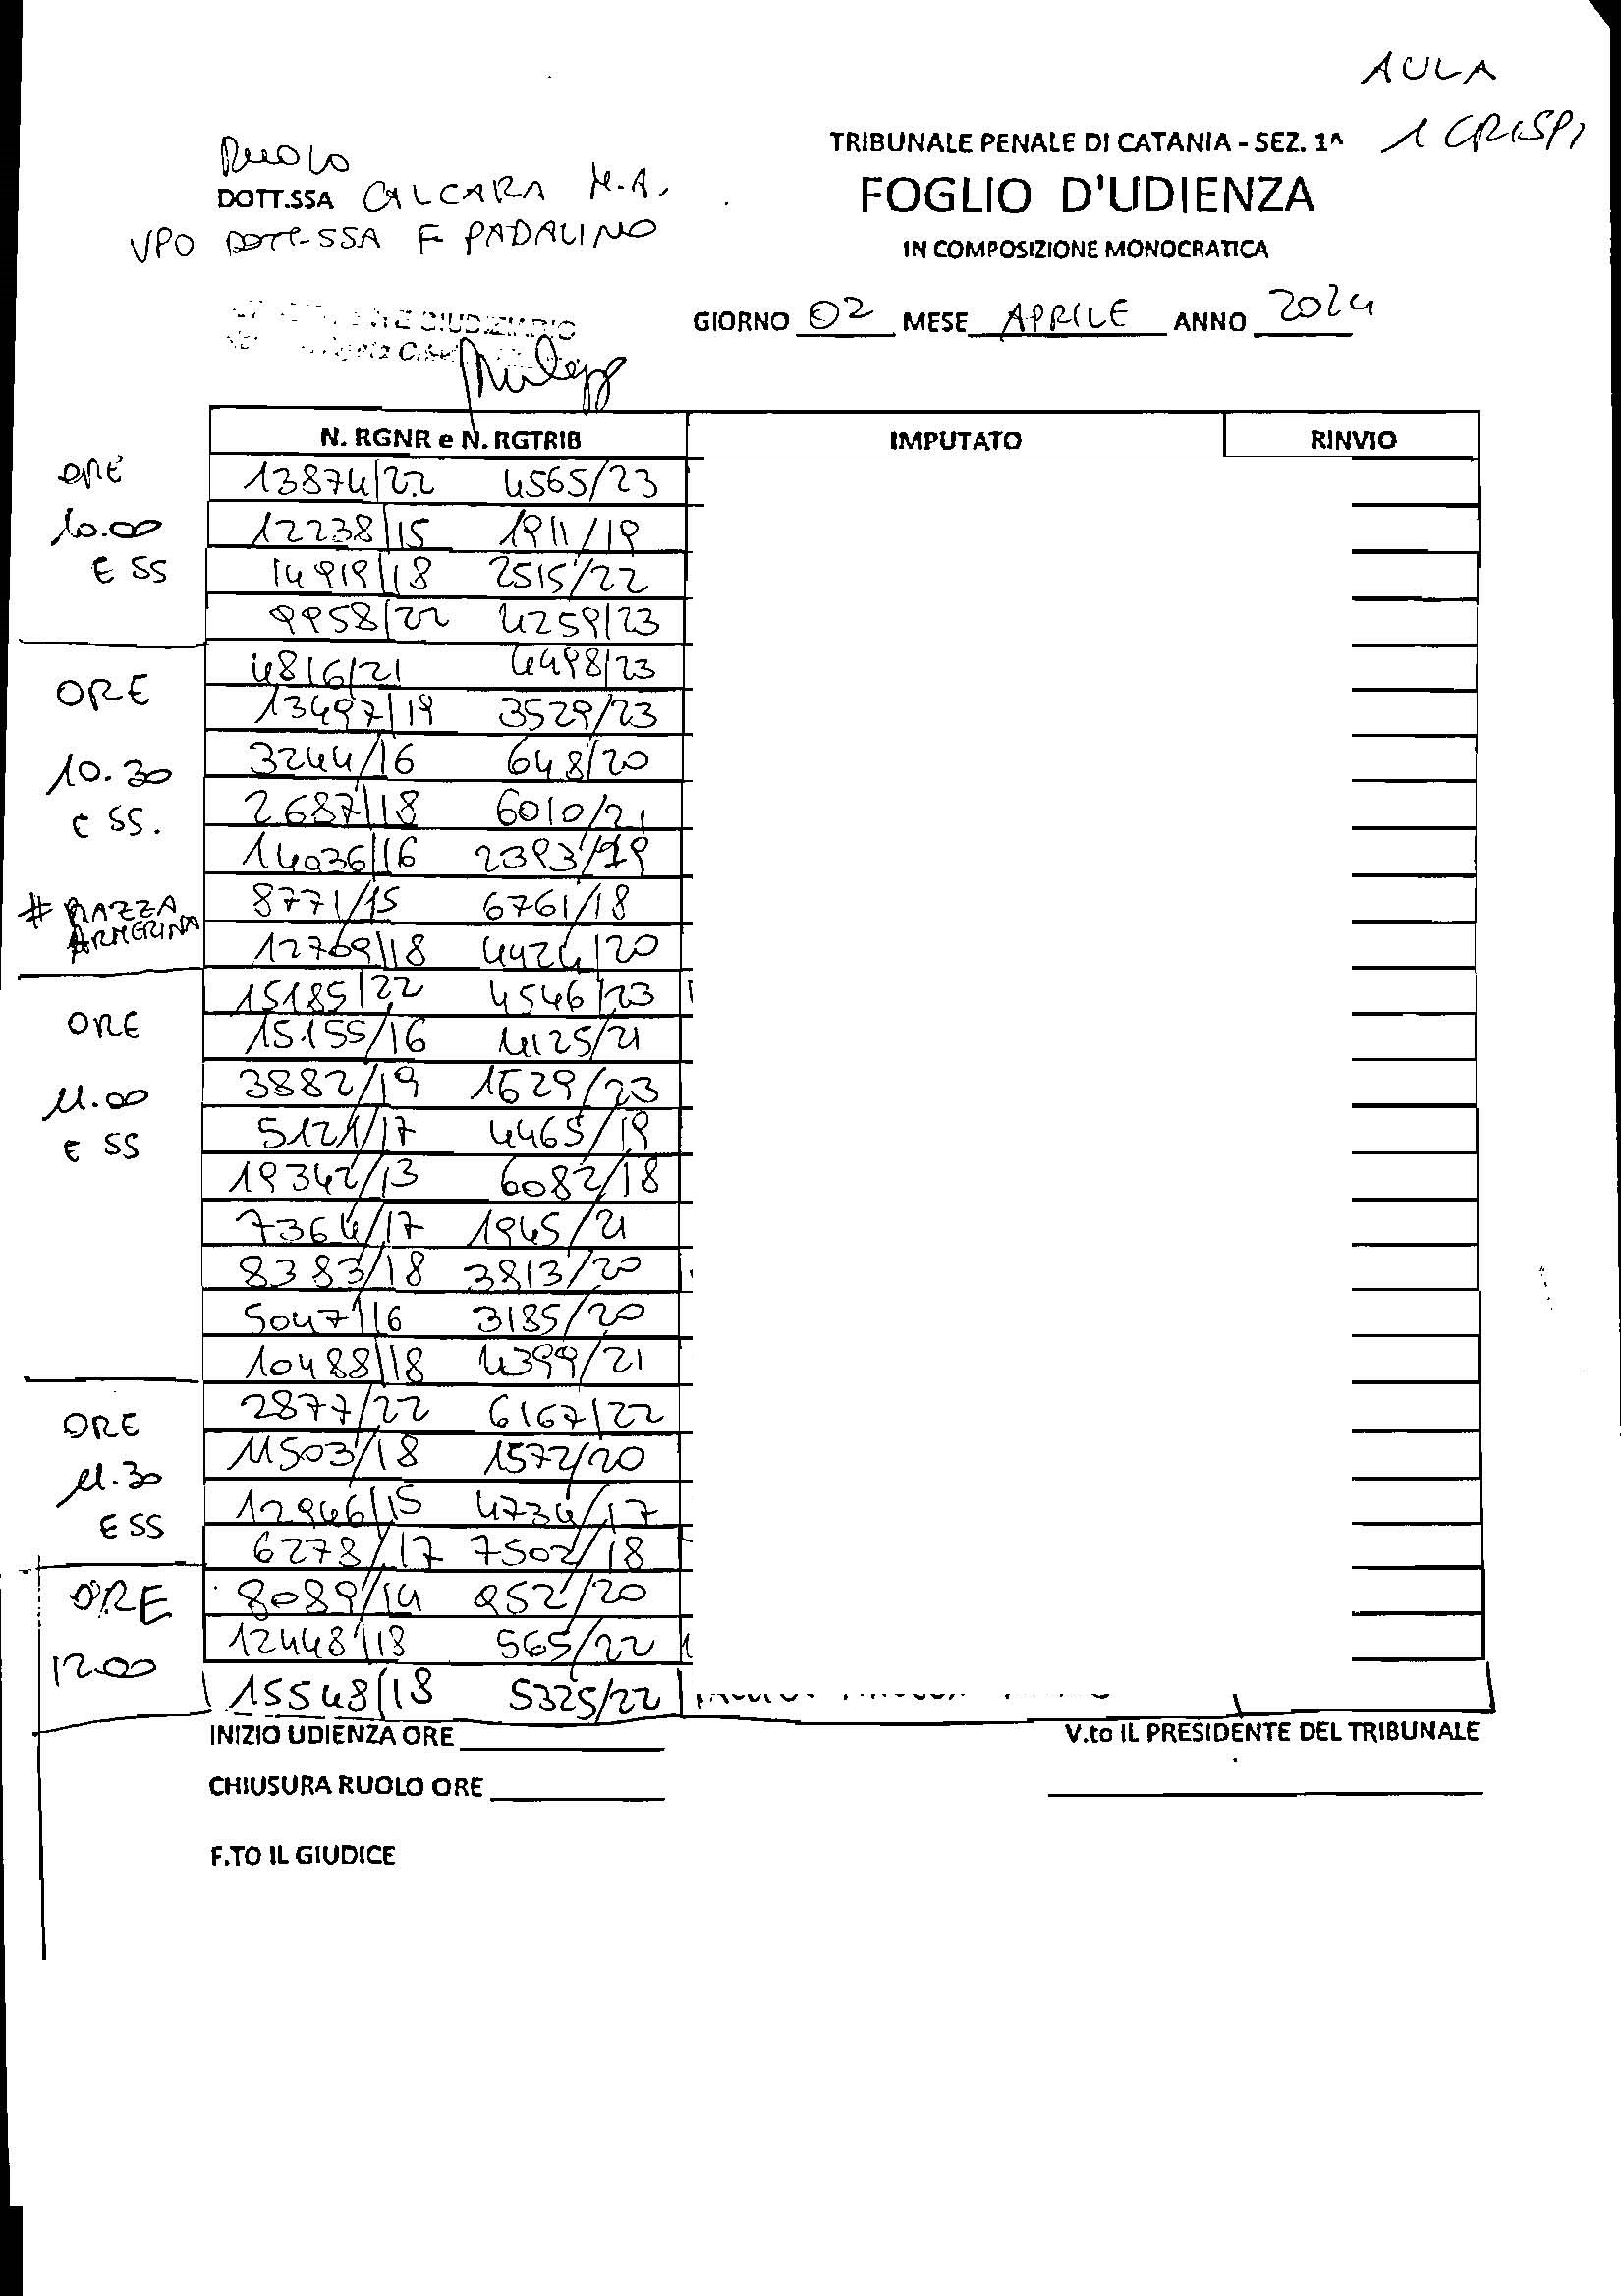 AULA
1 CRISPI
TRIBUNALE PENALE DI CATANIA - SEZ. 1^
RUOLO
DOTT.SSA CALCARA M.A.
FOGLIO D'UDIENZA
VPO DOTT-SSA F PADALINO
IN COMPOSIZIONE MONOCRATICA
GIUDIZIARIO
GIORNO 02 MESE APRILE ANNO 2024
N. RGNR e N. RGTRIB IMPUTATO RINVIO
ORE
10.00
E SS
13874/22 4565/23
12238/15 1911/19
14919/18 2515/22
9958/22 4259/23
ORE
10.30
E SS.
# PIAZZA
ARMERINA
4816/21 4498/23
13497/19 3529/23
3244/16 648/20
2687/18 6010/21
14036/16 2393/19
8771/15 6761/18
12709/18 4424/20
ORE
11.00
E SS
15185/22 4546/23
15155/16 4125/21
3882/19 1629/23
5121/17 4465/19
19342/13 6082/18
7364/17 1945/21
8383/18 3813/20
5047/16 3185/20
10488/18 4399/21
ORE
11.30
E SS
2877/22 6167/22
11503/18 1572/20
12946/15 4734/17
6278/17 7502/18
ORE
12.00
8089/14 952/20
12448/18 565/22
15548/18 5325/22
INIZIO UDIENZA ORE
V.to IL PRESIDENTE DEL TRIBUNALE
CHIUSURA RUOLO ORE
F.TO IL GIUDICE